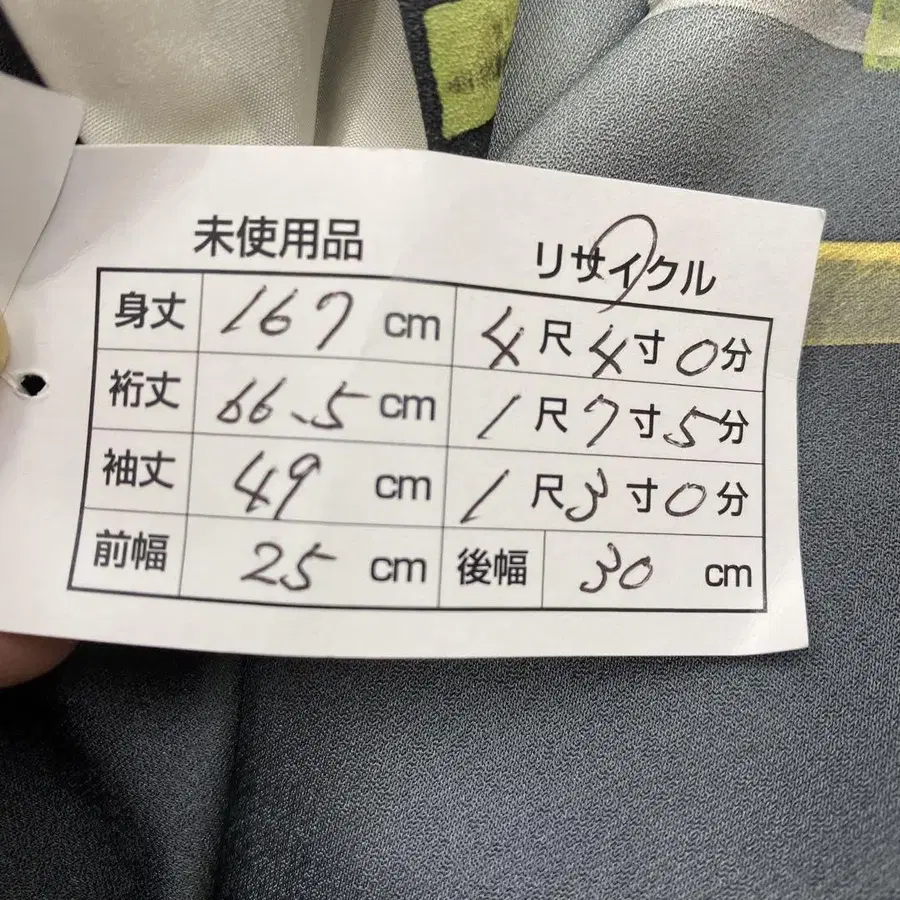 未使用品 リサイクル
身丈 167 cm 4尺4寸0分
裄丈 66.5 cm 1尺7寸5分
袖丈 49 cm 1尺3寸0分
前幅 25 cm 後幅 30 cm